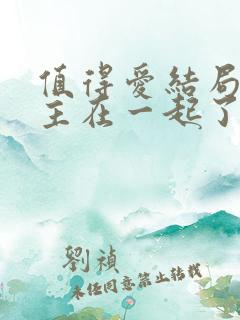 值得爱結局
主在一起了
劉禎
未经同意禁止转载